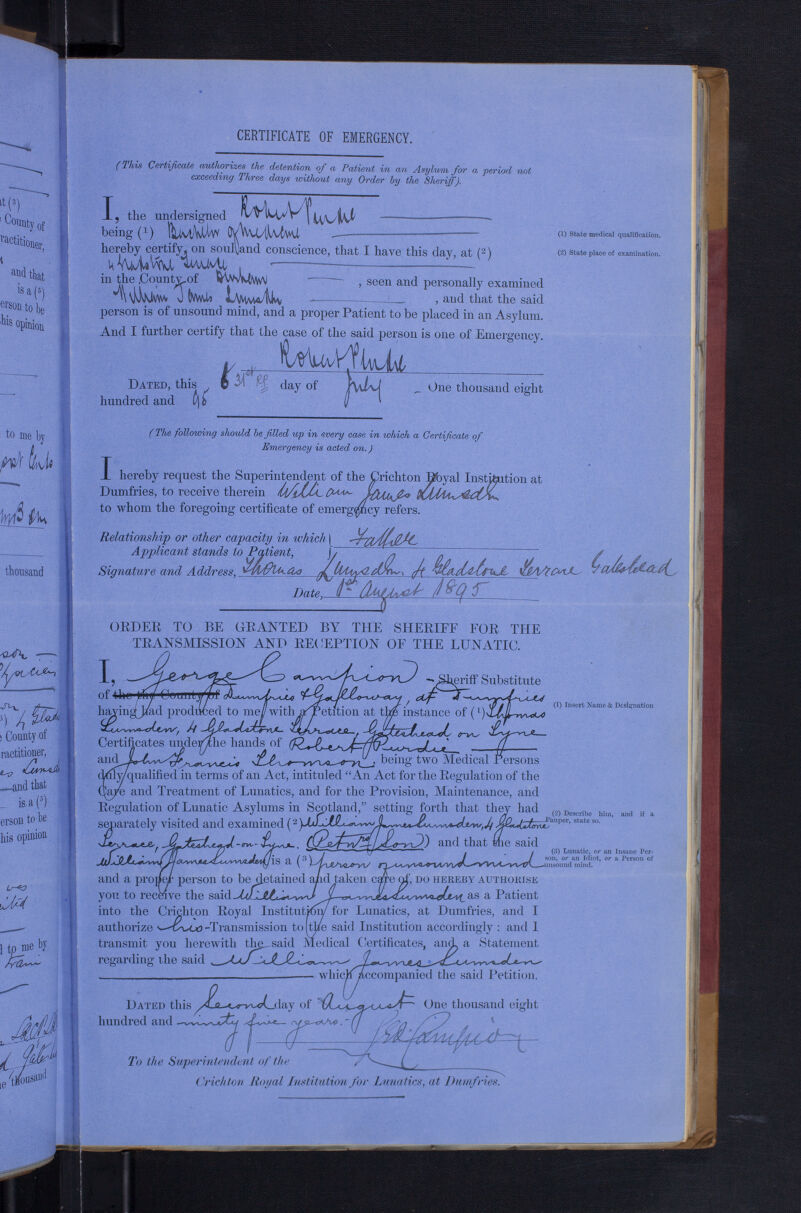 CERTIFICATE OF EMERGENCY.
(This Certificate authorizes the detention of a Patient in an Asylum for a period not
exceeding Three days without any Order by the Sheriff).
I, the undersigned Robert Purdie
being (1) Bachelor of Medicine
(1) State medical qualification.
hereby certify, on soul and conscience, that I have this day, at (2)
(2) State place of examination.
4 Gladstone Terrace
in the County of Durham , seen and personally examined
William James Lumsden , and that the said
person is of unsound mind, and a proper Patient to be placed in an Asylum.
And I further certify that the case of the said person is one of Emergency.
Robert Purdie
DATED, this 31st day of July One thousand eight
hundred and 95
(The following should be filled up in every case in which a Certificate of
Emergency is acted on.)
I hereby request the Superintendent of the Crichton Royal Institution at
Dumfries, to receive therein William James Lumsden
to whom the foregoing certificate of emergency refers.
Relationship or other capacity in which
Applicant stands to Patient, Father
Signature and Address, Thomas Lumsden, 4 Gladstone Terrace Gateshead
Date, 1st August 1895
ORDER TO BE GRANTED BY THE SHERIFF FOR THE
TRANSMISSION AND RECEPTION OF THE LUNATIC.
I, George Campion Sheriff Substitute
of the County of Dumfries & Galloway, at Dumfries
having had produced to me with a Petition at the instance of (1) Thomas
(1) Insert Name & Designation
Lumsden, 4 Gladstone Terrace, Gateshead on Tyne
Certificates under the hands of Robert Purdie
and John Francis Thomson, being two Medical Persons
duly qualified in terms of an Act, intituled "An Act for the Regulation of the
Care and Treatment of Lunatics, and for the Provision, Maintenance, and
Regulation of Lunatic Asylums in Scotland," setting forth that they had
separately visited and examined (2) William James Lumsden, 4 Gladstone
(2) Describe him, and if a
Pauper, state so.
Terrace, Gateshead-on-Tyne, (Petnrs Son) and that the said
William James Lumsden is a (3) person of unsound mind
(3) Lunatic, or an Insane Per-
son, or an Idiot, or a Person of
unsound mind.
and a proper person to be detained and taken care of, DO HEREBY AUTHORISE
you to receive the said William James Lumsden as a Patient
into the Crichton Royal Institution for Lunatics, at Dumfries, and I
authorize his Transmission to the said Institution accordingly : and I
transmit you herewith the said Medical Certificates, and a Statement
regarding the said William James Lumsden
which accompanied the said Petition.
DATED this Second day of August One thousand eight
hundred and ninety five years.
Campion
To the Superintendent of the
Crichton Royal Institution for Lunatics, at Dumfries.